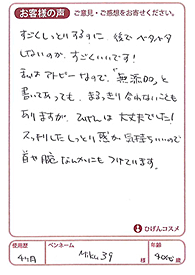 お客様の声 ご意見・ご感想をお寄せください。
すごくしっとりするのに 後でベタベタ
しないのが、すごくいいです!
私はアトピーなので、"無添加"と
書いてあっても、まるっきり合わないことも
ありますが、ひげんさんは大丈夫でした!
スッキリしたしっとり感が気持ちいいので
首や腕なんかにもつけています。
ひげんコスメ
使用歴 ペンネーム 年齢
4ヶ月 Miku 39 様 40代 歳